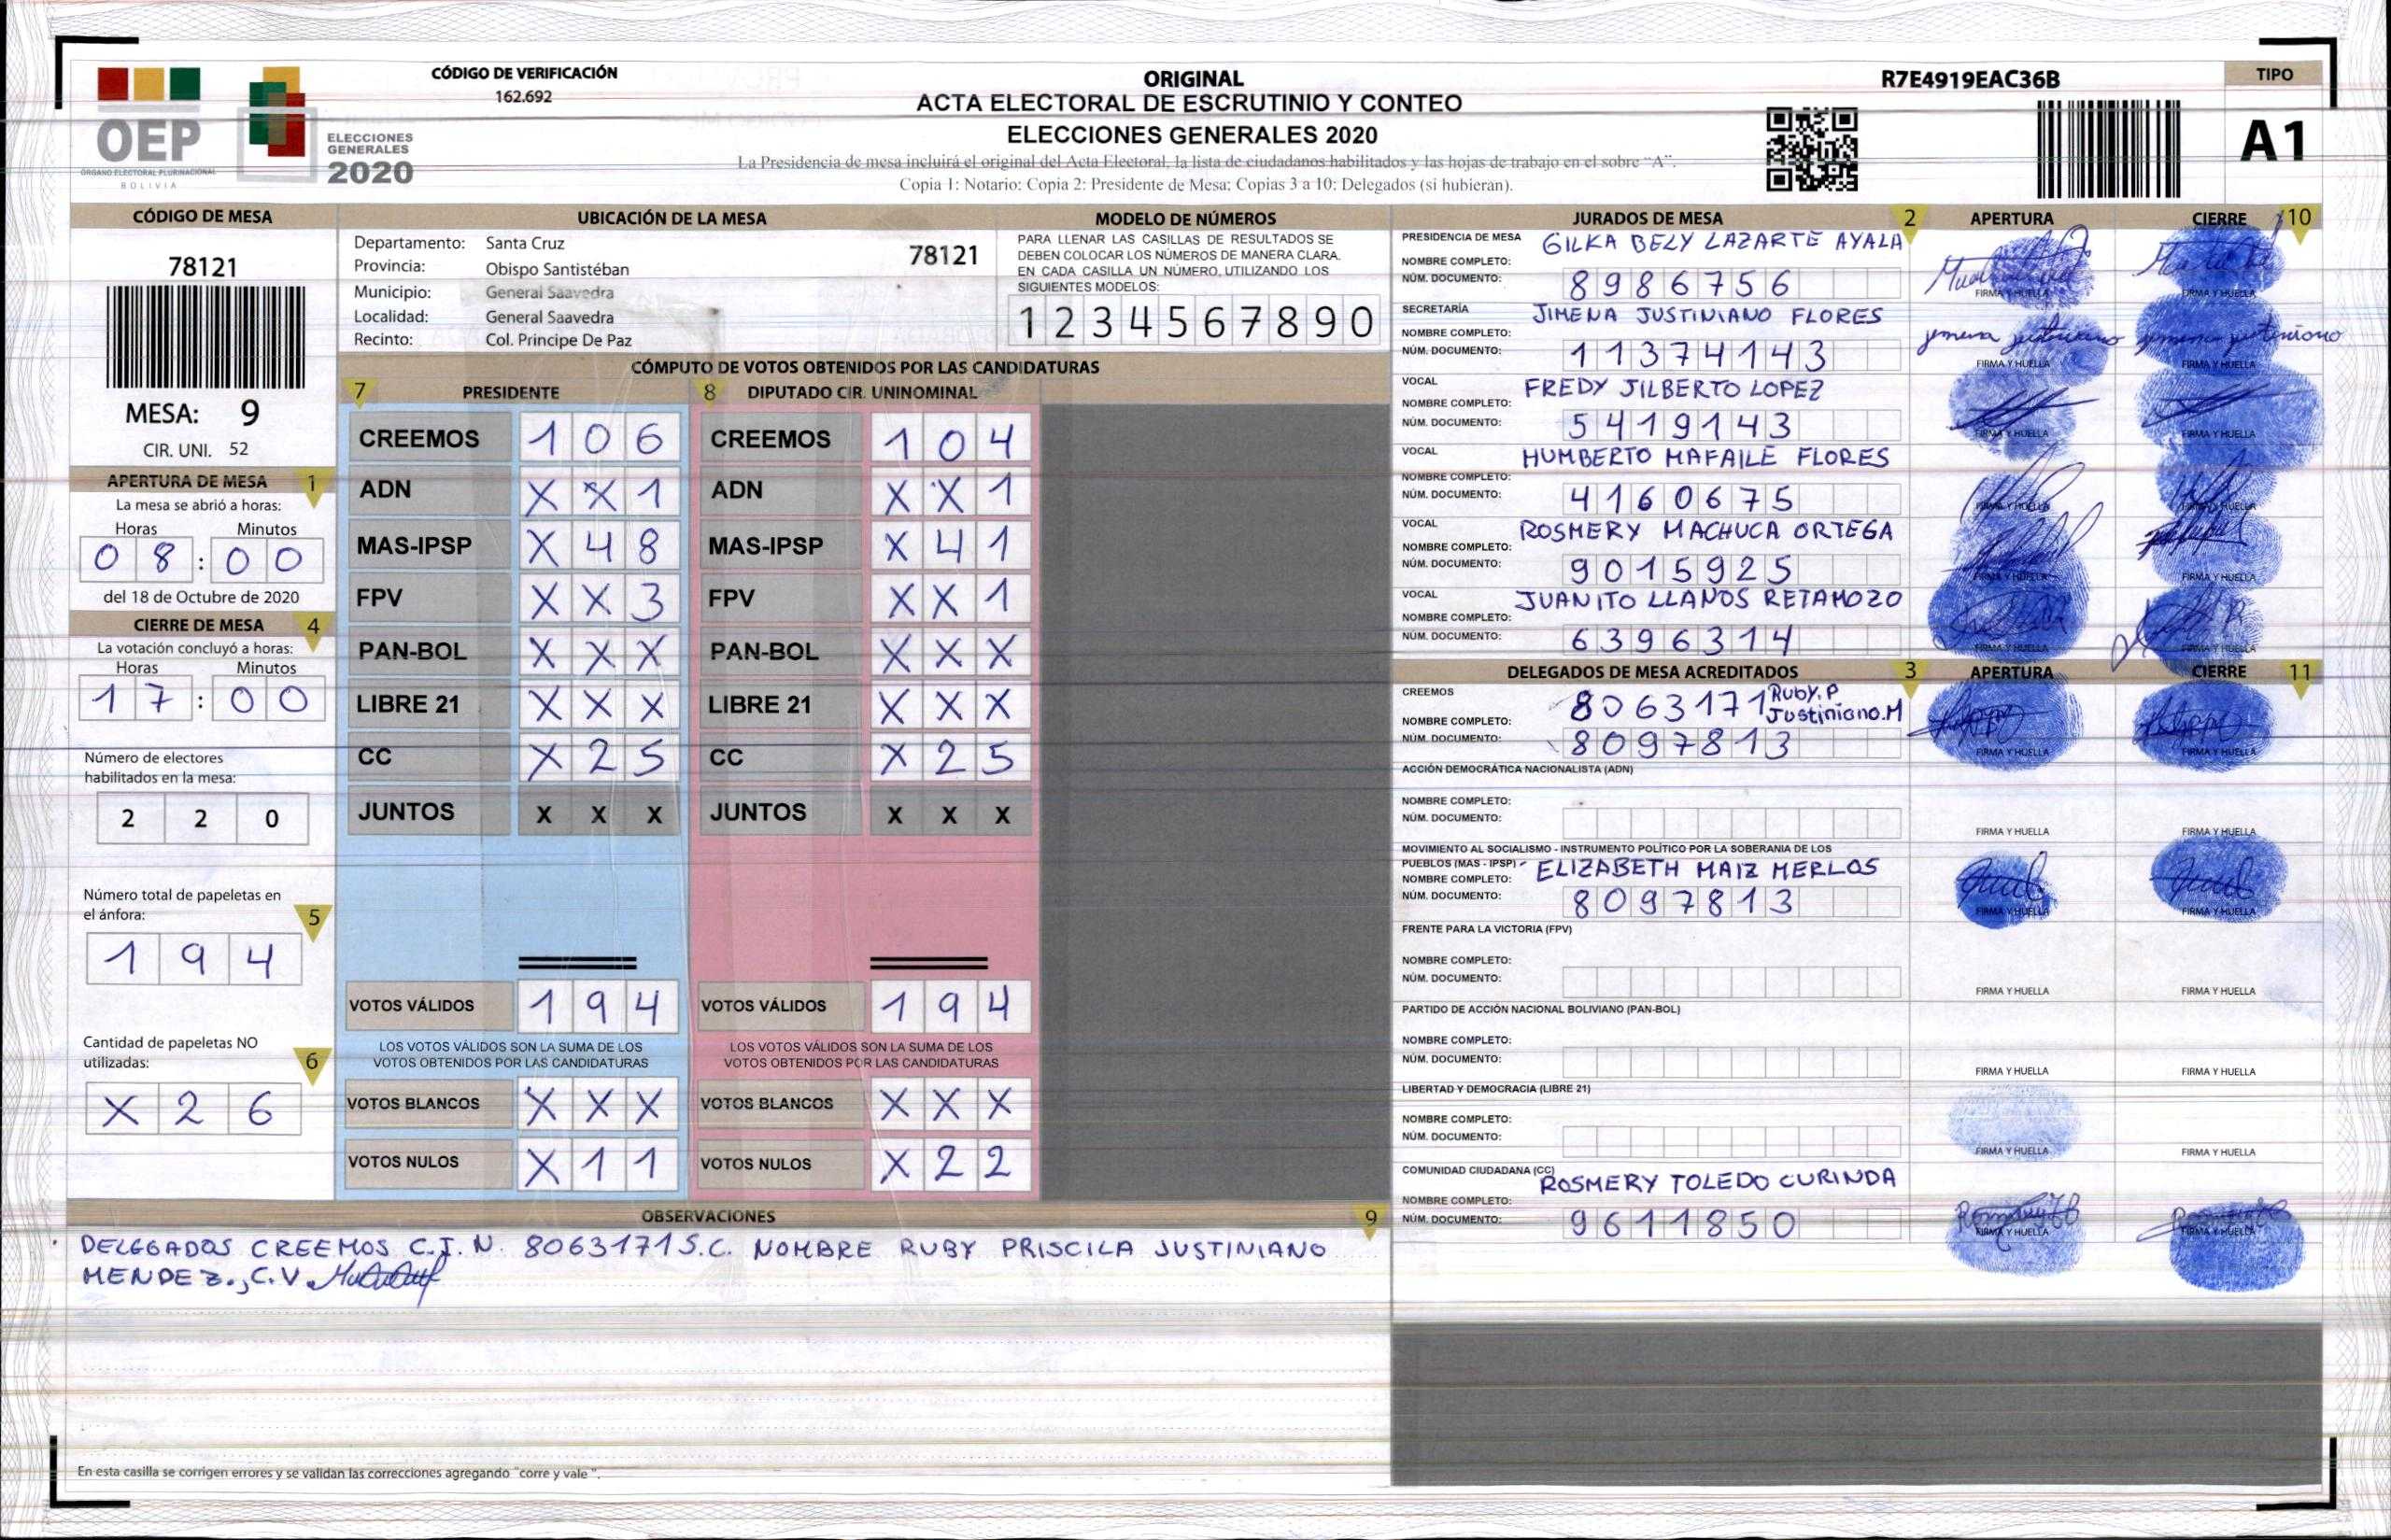 CÓDIGO DE VERIFICACIÓN
162.692
OEP
ÓRGANO ELECTORAL PLURINACIONAL
BOLIVIA
ELECCIONES
GENERALES
2020
ORIGINAL
ACTA ELECTORAL DE ESCRUTINIO Y CONTEO
ELECCIONES GENERALES 2020
La Presidencia de mesa incluirá el original del Acta Electoral, la lista de ciudadanos habilitados y las hojas de trabajo en el sobre "A".
Copia 1: Notario; Copia 2: Presidente de Mesa; Copias 3 a 10: Delegados (si hubieran).
R7E4919EAC36B
TIPO
A1
CÓDIGO DE MESA
78121
MESA: 9
CIR. UNI. 52
APERTURA DE MESA 1
La mesa se abrió a horas:
Horas Minutos
0 8 : 0 0
del 18 de Octubre de 2020
CIERRE DE MESA 4
La votación concluyó a horas:
Horas Minutos
1 7 : 0 0
Número de electores
habilitados en la mesa:
2 2 0
Número total de papeletas en
el ánfora: 5
1 9 4
Cantidad de papeletas NO
utilizadas: 6
X 2 6
UBICACIÓN DE LA MESA
Departamento: Santa Cruz 78121
Provincia: Obispo Santistéban
Municipio: General Saavedra
Localidad: General Saavedra
Recinto: Col. Principe De Paz
MODELO DE NÚMEROS
PARA LLENAR LAS CASILLAS DE RESULTADOS SE
DEBEN COLOCAR LOS NÚMEROS DE MANERA CLARA.
EN CADA CASILLA UN NÚMERO, UTILIZANDO LOS
SIGUIENTES MODELOS:
1 2 3 4 5 6 7 8 9 0
CÓMPUTO DE VOTOS OBTENIDOS POR LAS CANDIDATURAS
7 PRESIDENTE 8 DIPUTADO CIR. UNINOMINAL
CREEMOS 1 0 6 CREEMOS 1 0 4
ADN X X 1 ADN X X 1
MAS-IPSP X 4 8 MAS-IPSP X 4 1
FPV X X 3 FPV X X 1
PAN-BOL X X X PAN-BOL X X X
LIBRE 21 X X X LIBRE 21 X X X
CC X 2 5 CC X 2 5
JUNTOS X X X JUNTOS X X X
VOTOS VÁLIDOS 1 9 4 VOTOS VÁLIDOS 1 9 4
LOS VOTOS VÁLIDOS SON LA SUMA DE LOS LOS VOTOS VÁLIDOS SON LA SUMA DE LOS
VOTOS OBTENIDOS POR LAS CANDIDATURAS VOTOS OBTENIDOS POR LAS CANDIDATURAS
VOTOS BLANCOS X X X VOTOS BLANCOS X X X
VOTOS NULOS X 1 1 VOTOS NULOS X 2 2
OBSERVACIONES 9
DELEGADOS CREEMOS C.I. N. 8063171 S.C. NOMBRE RUBY PRISCILA JUSTINIANO
MENDEZ., C.V.
En esta casilla se corrigen errores y se validan las correcciones agregando "corre y vale".
JURADOS DE MESA 2 APERTURA CIERRE 10
PRESIDENCIA DE MESA GILKA BELY LAZARTE AYALA
NOMBRE COMPLETO:
NÚM. DOCUMENTO: 8986756 FIRMA Y HUELLA FIRMA Y HUELLA
SECRETARÍA JIMENA JUSTINIANO FLORES
NOMBRE COMPLETO: jimena justiniano jimena justiniano
NÚM. DOCUMENTO: 11374143 FIRMA Y HUELLA FIRMA Y HUELLA
VOCAL FREDY JILBERTO LOPEZ
NOMBRE COMPLETO:
NÚM. DOCUMENTO: 5419143 FIRMA Y HUELLA FIRMA Y HUELLA
VOCAL HUMBERTO MAFAILE FLORES
NOMBRE COMPLETO:
NÚM. DOCUMENTO: 4160675 FIRMA Y HUELLA FIRMA Y HUELLA
VOCAL ROSMERY MACHUCA ORTEGA
NOMBRE COMPLETO:
NÚM. DOCUMENTO: 9015925 FIRMA Y HUELLA FIRMA Y HUELLA
VOCAL JUANITO LLANOS RETAMOZO
NOMBRE COMPLETO:
NÚM. DOCUMENTO: 6396314 FIRMA Y HUELLA FIRMA Y HUELLA
DELEGADOS DE MESA ACREDITADOS 3 APERTURA CIERRE 11
CREEMOS 8063171 Ruby. P
NOMBRE COMPLETO: Justiniano. M
NÚM. DOCUMENTO: 8097813 FIRMA Y HUELLA FIRMA Y HUELLA
ACCIÓN DEMOCRÁTICA NACIONALISTA (ADN)
NOMBRE COMPLETO:
NÚM. DOCUMENTO: FIRMA Y HUELLA FIRMA Y HUELLA
MOVIMIENTO AL SOCIALISMO - INSTRUMENTO POLÍTICO POR LA SOBERANIA DE LOS
PUEBLOS (MAS - IPSP) ELIZABETH MAIZ MERLOS
NOMBRE COMPLETO:
NÚM. DOCUMENTO: 8097813 FIRMA Y HUELLA FIRMA Y HUELLA
FRENTE PARA LA VICTORIA (FPV)
NOMBRE COMPLETO:
NÚM. DOCUMENTO: FIRMA Y HUELLA FIRMA Y HUELLA
PARTIDO DE ACCIÓN NACIONAL BOLIVIANO (PAN-BOL)
NOMBRE COMPLETO:
NÚM. DOCUMENTO: FIRMA Y HUELLA FIRMA Y HUELLA
LIBERTAD Y DEMOCRACIA (LIBRE 21)
NOMBRE COMPLETO:
NÚM. DOCUMENTO: FIRMA Y HUELLA FIRMA Y HUELLA
COMUNIDAD CIUDADANA (CC) ROSMERY TOLEDO CURINDA
NOMBRE COMPLETO:
NÚM. DOCUMENTO: 9611850 FIRMA Y HUELLA FIRMA Y HUELLA